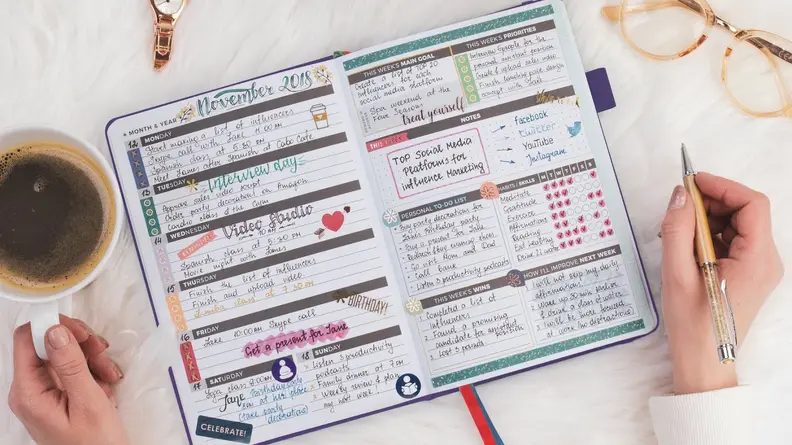 MONTH & YEAR
November 2018
MONDAY
12
Start making a list of influencers
Skype call with Jake 11:00 AM
Spanish class at 5:30 PM
Meet James after Spanish at Cabo Cafe
TUESDAY
Interview day
13
Approve sales video script
Order party decorations on Amazon
Cardio class at the Gym
WEDNESDAY
Video Studio
14
Spanish class at 5:30 PM
Movie night with James
THURSDAY
15
Finish the list of influencers
Finish and upload video
Zumba class at 7:30 PM
BIRTHDAY!
FRIDAY
16
Jake 10:00 AM Skype call
Get a present for Jane
SATURDAY
17
Yoga class 9:00 AM
Jane Birthday party
at her place
(take party
decorations)
CELEBRATE!
18 SUNDAY
Listen 3 productivity
podcasts
Family dinner at 7 PM
Weekly review & plan
my next week
THIS WEEK'S MAIN GOAL
Create a list of
influencers for each
social media platform
Spa weekend at the
Four Seasons
treat yourself
THIS WEEK'S PRIORITIES
Interview 6 people for the
personal assistant position
Create & upload sales video
Finish landing page design
concept with Jake
NOTES
TOP Social Media
Platforms for
influence Marketing
facebook
twitter
YouTube
Instagram
PERSONAL TO-DO LIST
Buy party decorations for
Jane's Birthday party
Buy a present for Jane
Go visit Mom and Dad
Call bank
Listen 3 productivity podcasts
HABITS / SKILLS M T W T F S S
Meditate
Gratitude
Exercise
Affirmations
Reading
Eat Healthy
Drink Water
THIS WEEK'S WINS
Completed a list of
influencers
Found a promising
candidate for assistant
position
Lost 3 pounds
HOW I'LL IMPROVE NEXT WEEK
I will not skip my daily
affirmations
Wake up 30 min earlier